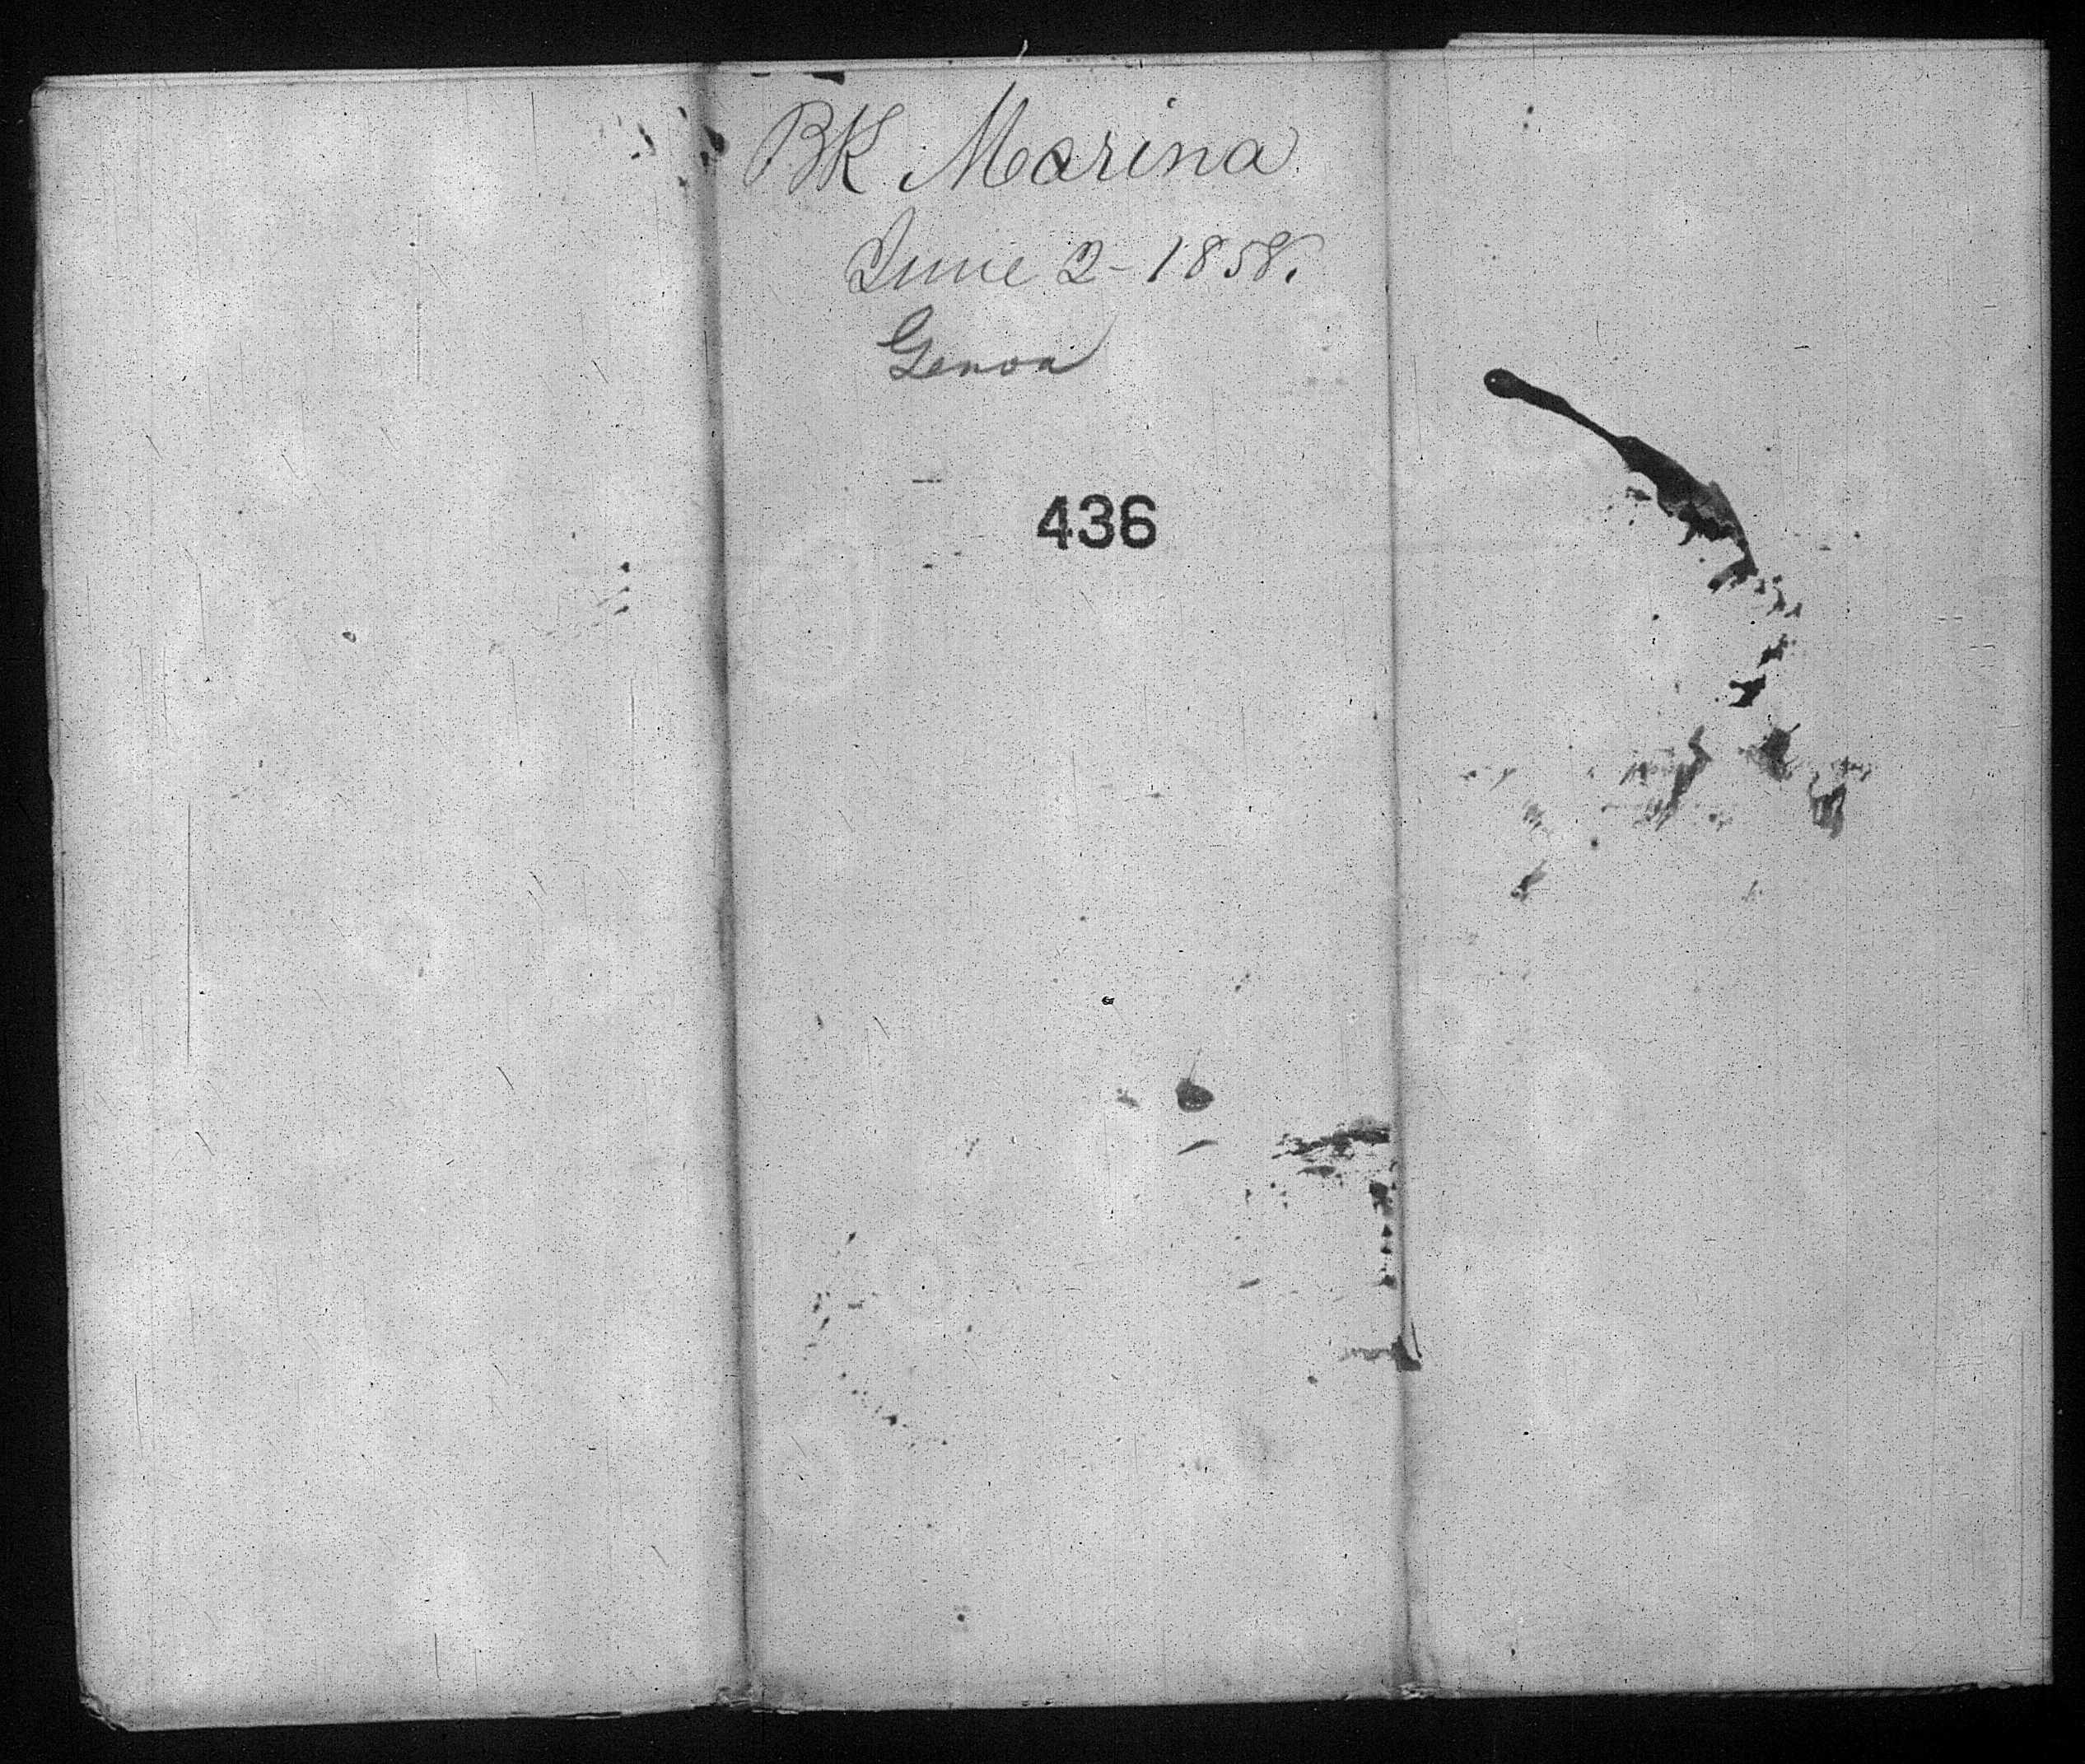 BK Marina
June 2-1858.
Genoa
436